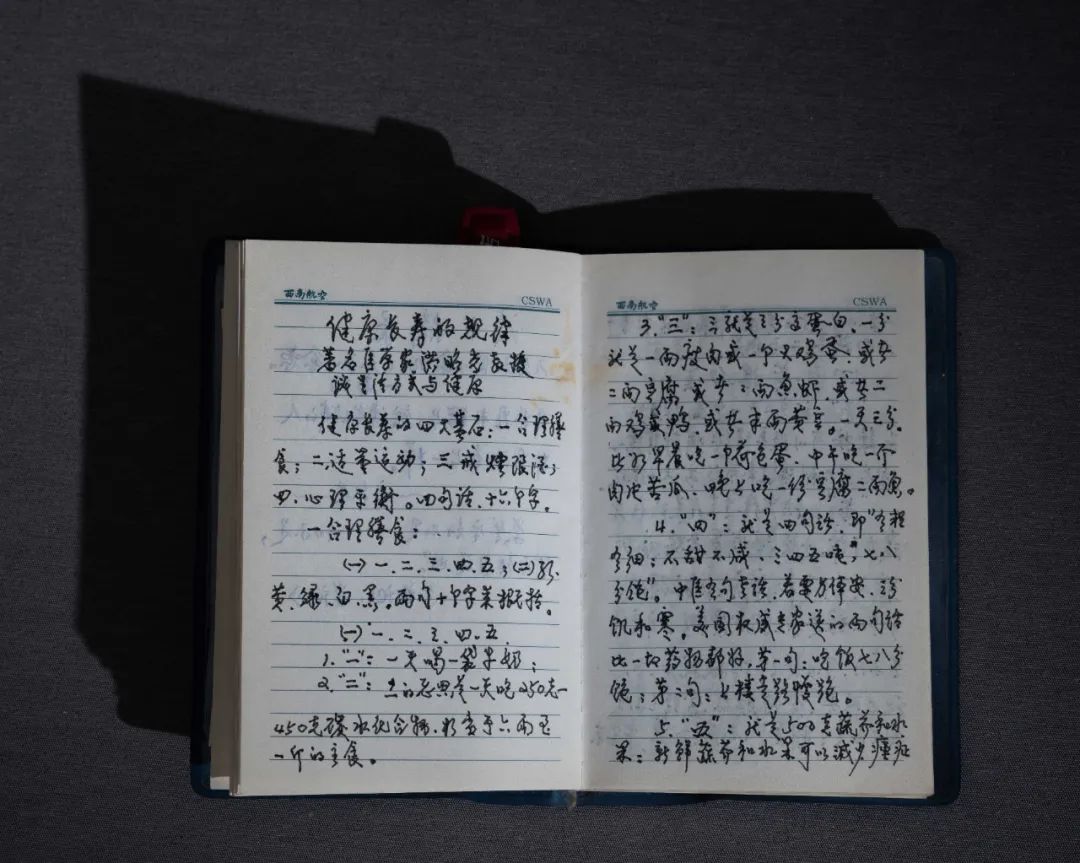 西南航空 CSWA
健康长寿的规律
著名医学家洪昭光教授
谈生活方式与健康
健康长寿的四大基石：一合理膳
食；二适量运动；三戒烟限酒；
四、心理平衡。四句话，十六个字。
一合理膳食：
(一)一、二、三、四、五；(二)红、
黄、绿、白、黑。两句十个字来概括。
(一)一、二、三、四、五、
1."一"：一天喝一袋牛奶；
2."二"：二的意思是一天吃250克—
450克碳水化合物，相当于六两至
一斤的主食。
西南航空 CSWA
3."三"：三就是三分高蛋白，一分
就是一两瘦肉或一个大鸡蛋，或者
二两豆腐，或者二两鱼虾，或者二
两鸡或鸭，或者半两黄豆。一天三分。
比如早晨吃一个荷包蛋，中午吃一个
肉片苦瓜，晚上吃一份豆腐二两鱼。
4."四"：就是四句话，即"有粗
有细；不甜不咸，三四五顿，七八
分饱"。中医有句老话，若要身体安，三分
饥和寒。美国权威专家送的两句话
比一切药物都好，第一句：吃饭七八分
饱；第二句：上楼走路慢跑。
5."五"：就是500克蔬菜和水
果：新鲜蔬菜和水果可以减少癌症